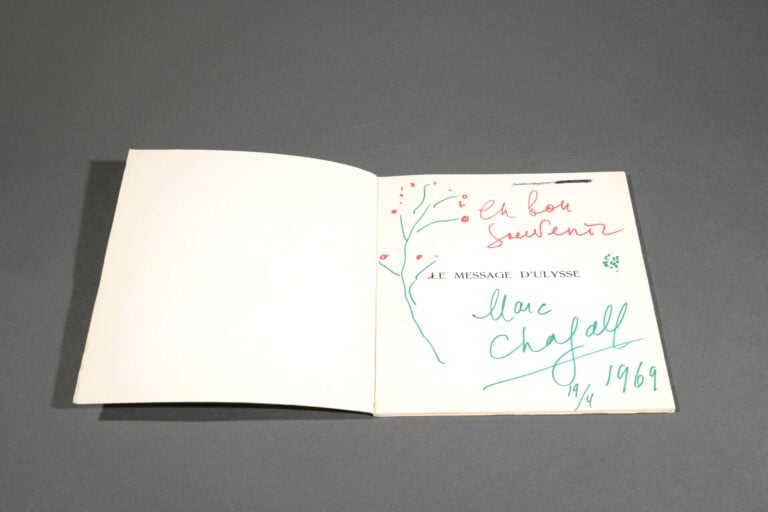 En bon
souvenir
LE MESSAGE D'ULYSSE
Marc
Chagall
19/4 1969